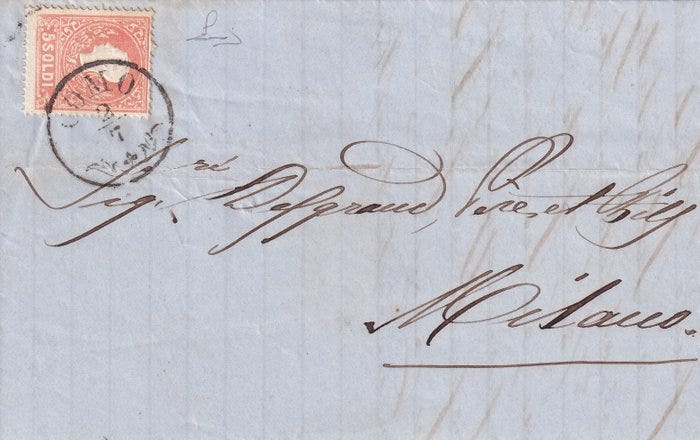 5 SOLDI
COMO
2/7
Sig.ri Desgrand, Père et Fils
Milano.